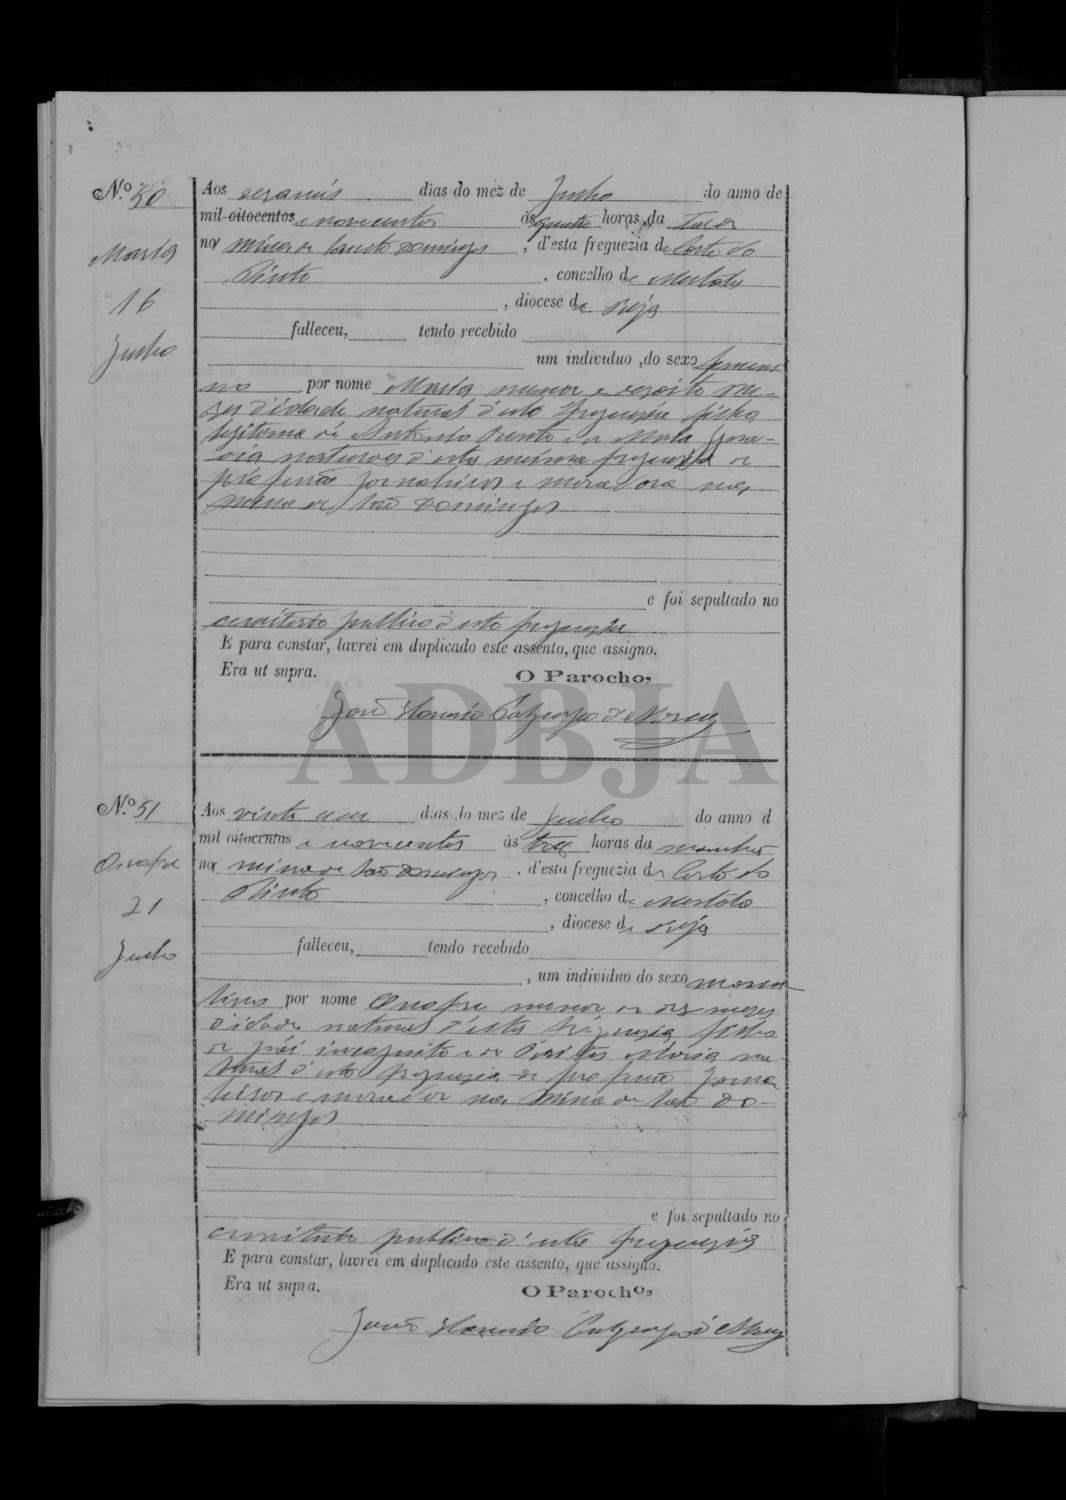 N.º 50
Maria
16
Junho
Aos dezaseis dias do mez de Junho do anno de
mil oitocentos e novecentos ás quatro horas da tarde
na mina de São Domingos, d'esta freguezia de Corte do
Pinto, concelho de Mertola
, diocese de Beja
falleceu, tendo recebido
um individuo do sexo femeni
no por nome Maria menor e dezoito me-
zes d'idade natural d'esta freguezia filha
legitima de e de Maria
naturaes d'esta mesma freguezia de
profissão jornaleiros e moradora na
mina de São Domingos
e foi sepultado no
cemiterio publico d'esta freguezia
E para constar, lavrei em duplicado este assento, que assigno.
Era ut supra.
O Parocho,
José
ADBJA
N.º 51
Onofre
21
Junho
Aos vinte um dias do mez de Junho do anno d
mil oitocentos e novecentos ás tres horas da manhã
na mina de São Domingos, d'esta freguezia de Corte do
Pinto, concelho de Mertola
, diocese de Beja
falleceu, tendo recebido
, um individuo do sexo mascu
lino por nome Onofre menor de dez mezes
d'idade natural d'esta freguezia filho
de pai incognito e de Maria na-
tural d'esta freguezia de profissão jorna
leiros e morador na Mina de São Do-
mingos
e foi sepultado no
cemiterio publico d'esta freguezia
E para constar, lavrei em duplicado este assento, que assigno.
Era ut supra.
O Parocho,
José